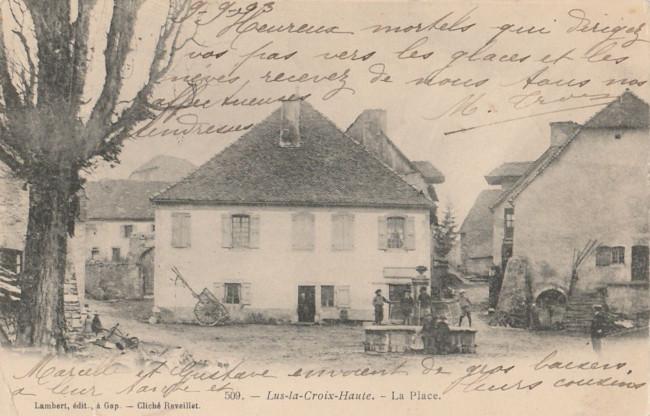 9-9-903
Heureux mortels qui dirigez
vos pas vers les glaces et les
neves, recevez de nous tous nos
affectueuses
tendresses
M.
Marcelle et Gustave envoient de gros baisers
à leur et leurs cousins
509. — Lus-la-Croix-Haute. — La Place.
Lambert, édit., à Gap. — Cliché Reveillet.